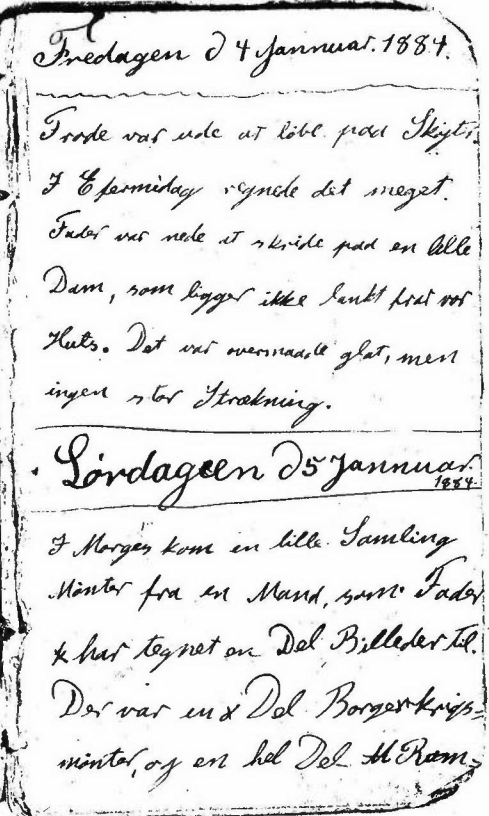 Fredagen d 4 Jannuar. 1884.
Frode var ude at løbe paa Skøjter.
I Eftermidag regnede det meget.
Fader var nede at skride paa en lille
Dam, som ligger ikke lankt fra vor
Huts. Det var overmaade glat, men
ingen stor Strækning.
Lørdageen d 5 Jannuar.
1884.
I Morges kom en lille Samling
Mønter fra en Mand, som Fader
har tegnet en Del Billeder til.
Der var en Del Borgerkrigs=
mønter, og en hel Del M Rom=